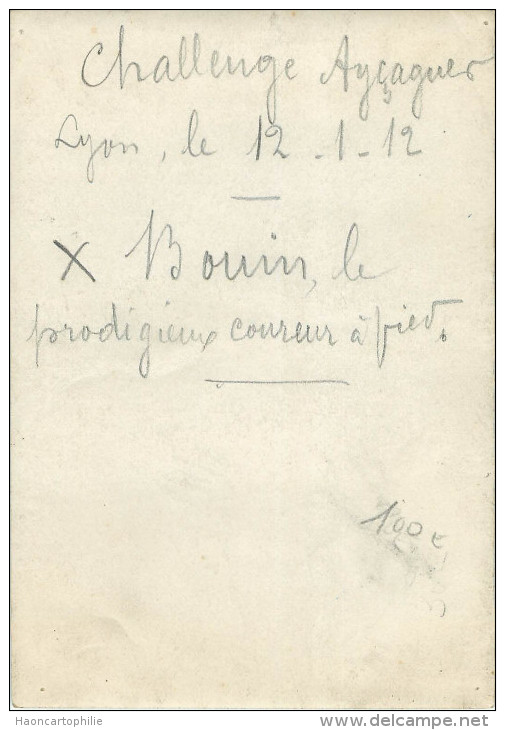 Challenge Ayçaguer
Lyon, le 12-1-12
x Bouin, le
prodigieux coureur à pied.
100 €
Haoncartophilie
delcampe.net